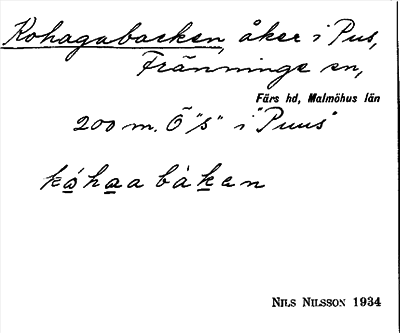 Kohagabacken, åker i Pus,
Fränninge sn,
Färs hd, Malmöhus län
200 m. Ö "s" i "Puus"
kóhaa bàken
NILS NILSSON 1934